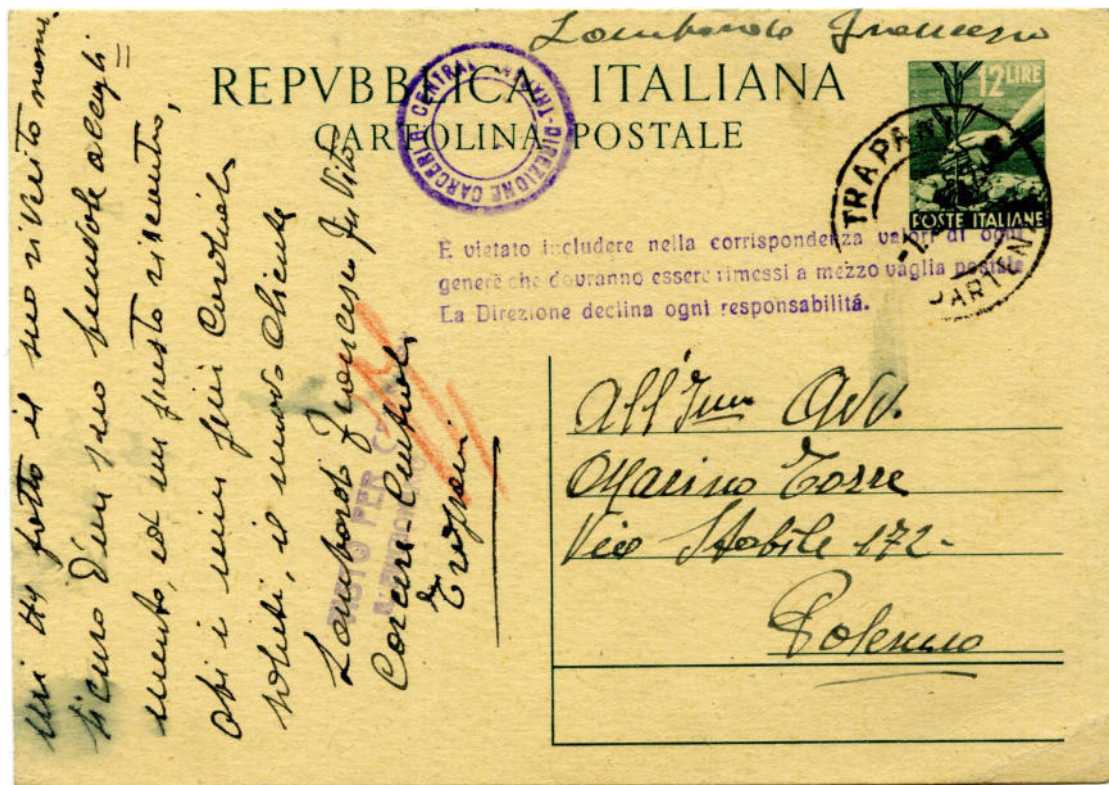 Lombardo Francesco
REPVBBLICA ITALIANA
CARTOLINA POSTALE
12 LIRE
POSTE ITALIANE
DIREZIONE CARCERI G. CENTRALI - TRAPANI
TRAPANI
PARTENZA
È vietato includere nella corrispondenza valori di ogni
genere che dovranno essere rimessi a mezzo vaglia postale
La Direzione declina ogni responsabilitá.
All'Ill.mo Avv.
Marino Torre
Via Stabile 172-
Palermo
fatto il suo nomi
sicuro d'un suo accogli
=
mento, ed un giusto riscontro,
i miei fini Cordiali
saluti, il nuovo Cliente
Lombardo Francesco fu Vito
Carceri-Centrali
Trapani
VISTO PER